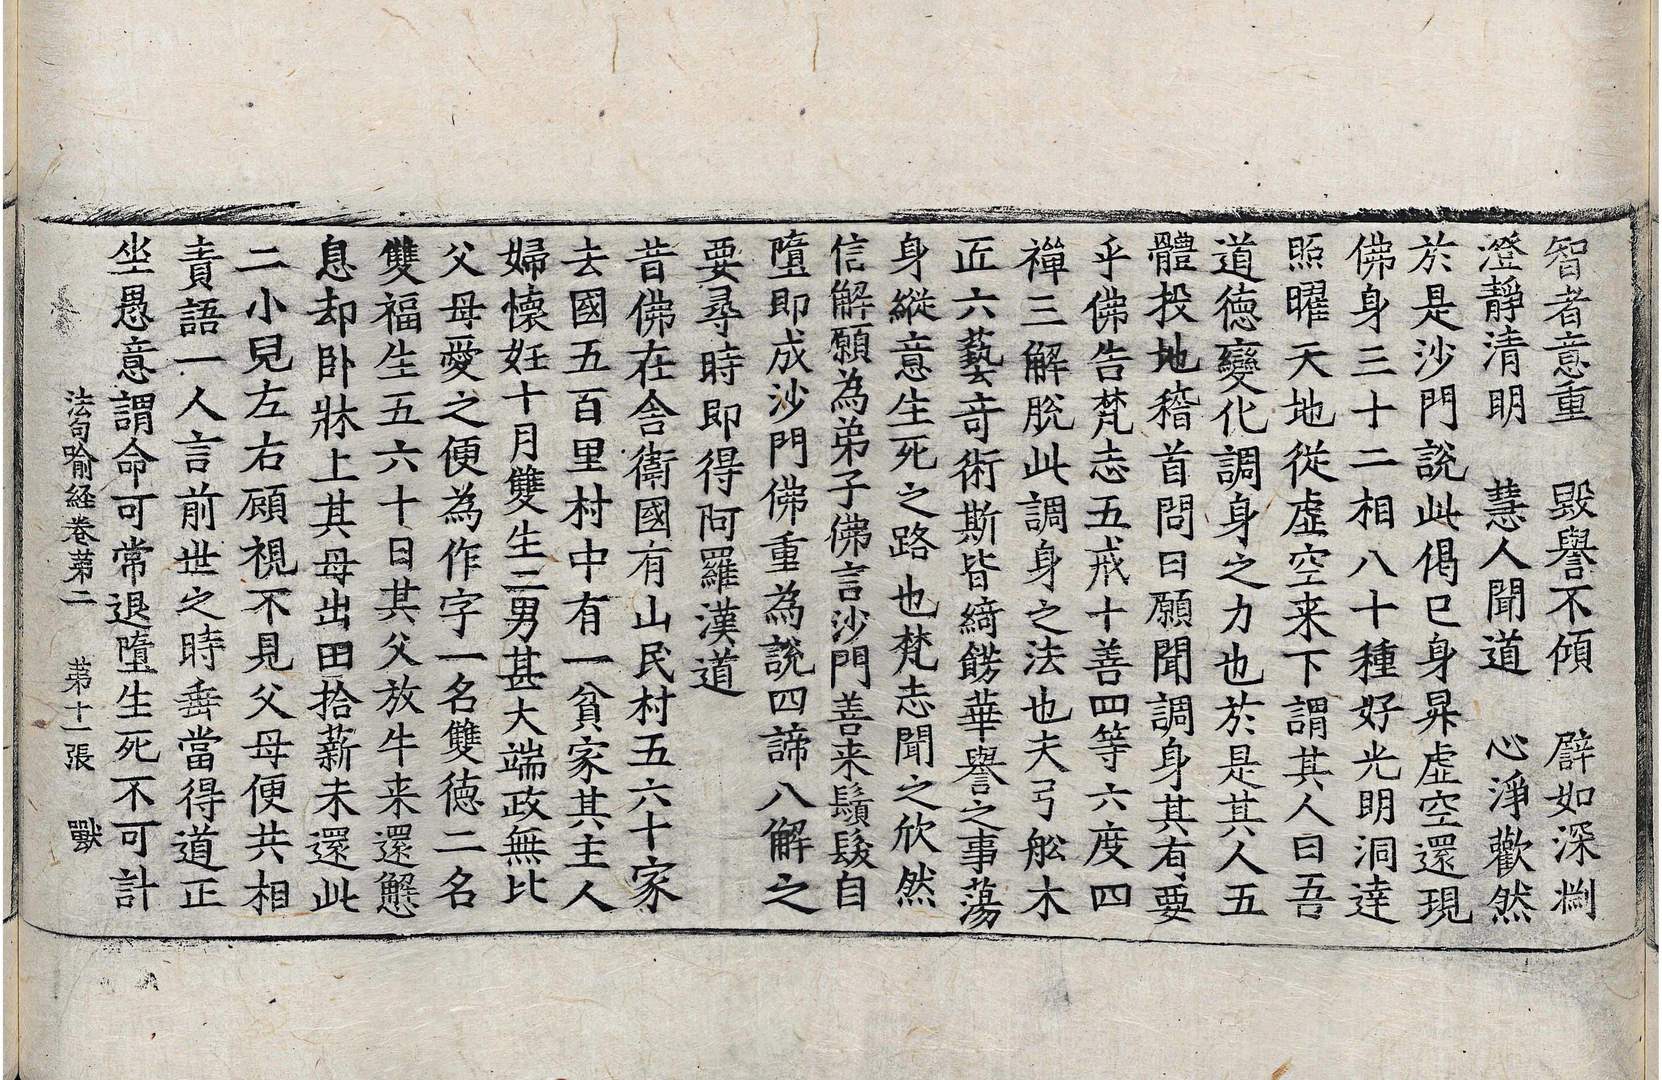 智者意重　毀譽不傾　譬如深淵
澄靜清明　慧人聞道　心淨歡然
於是沙門說此偈已身昇虛空還現
佛身三十二相八十種好光明洞達
照曜天地從虛空来下謂其人曰吾
道德變化調身之力也於是其人五
體投地稽首問曰願聞調身其有要
乎佛告梵志五戒十善四等六度四
禪三解脫此調身之法也夫弓舩木
匠六藝竒術斯皆綺餝華譽之事蕩
身縱意生死之路也梵志聞之欣然
信解願為弟子佛言沙門善来鬚髮自
墮即成沙門佛重為說四諦八解之
要尋時即得阿羅漢道
昔佛在舍衛國有山民村五六十家
去國五百里村中有一貧家其主人
婦懷妊十月雙生二男甚大端政無比
父母愛之便為作字一名雙德二名
雙福生五六十日其父放牛来還懈
息却卧牀上其母出田拾薪未還此
二小兒左右顧視不見父母便共相
責語一人言前世之時垂當得道正
坐愚意謂命可常退墮生死不可計
法句喻経卷苐二　苐十一張　獸